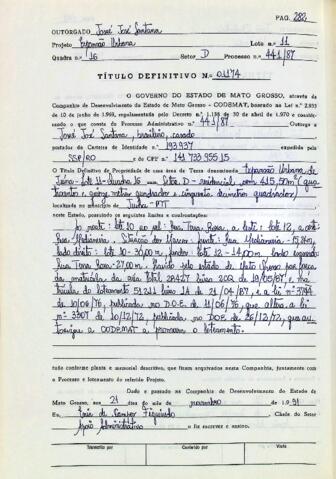 PAG. 282
OUTORGADO José José Santana
Projeto Expansão Urbana Lote n.º 11
Quadra n.º 16 Setor D Processo n.º 441/87
TÍTULO DEFINITIVO N.º 01174
O GOVERNO DO ESTADO DE MATO GROSSO, através da
Companhia de Desenvolvimento do Estado de Mato Grosso - CODEMAT, baseado na Lei n.º 2.933
de 10 de junho de 1969, regulamentada pelo Decreto n.º 1.138 de 30 de abril de 1970 e considerando
o que consta do Processo Administrativo n.º 441/87 Outorga a
José José Santana, brasileiro, casado
portador da Carteira de Identidade n.º 193.937 expedida pela
SSP/RO e do CPF n.º 141 733 955 15
O Título Definitivo de Propriedade de uma área de Terra denominada Expansão Urbana de
Juína - lote 11 - Quadra 16 - Setor D - residencial com 415,50m² (qua
trocentos e quinze metros quadrados e cinquenta decímetros quadrados)
localizada no município de Juína - MT
neste Estado, possuindo os seguintes limites e confrontações:
ao norte: lote 10 ao sul: Rua Terra Roxa, a leste: lote 12, a oeste
Rua
lado direito: lote 10 - 30,00m, fundos lote 12 - 14,00m lado esquerdo
Rua Terra Roxa - 27,00m. Havido pelo estado de Mato Grosso por força
da matrícula da área total 28427 livro 202 de 19/05/87, e ma
trícula do loteamento 51211 livro 1A de 21/04/87, e a lei nº 3744
de 10/06/76, publicada no D.O.E. de 11/06/76, que altera a lei
nº 3307 de 10/12/72, publicada no DOE de 26/12/72, que au
toriza a CODEMAT a promover o loteamento.
tudo conforme planta e memorial descritivo, que ficam arquivados nesta Companhia, juntamente com
o Processo e loteamento do referido Projeto.
Dado e passado na Companhia de Desenvolvimento do Estado de
Mato Grosso, aos 21 dias do mês de novembro de 1991
Eu, Chefe do Setor
Apoio Administrativo o fiz escrever e assino.
Transcrito por Conferido por Visto